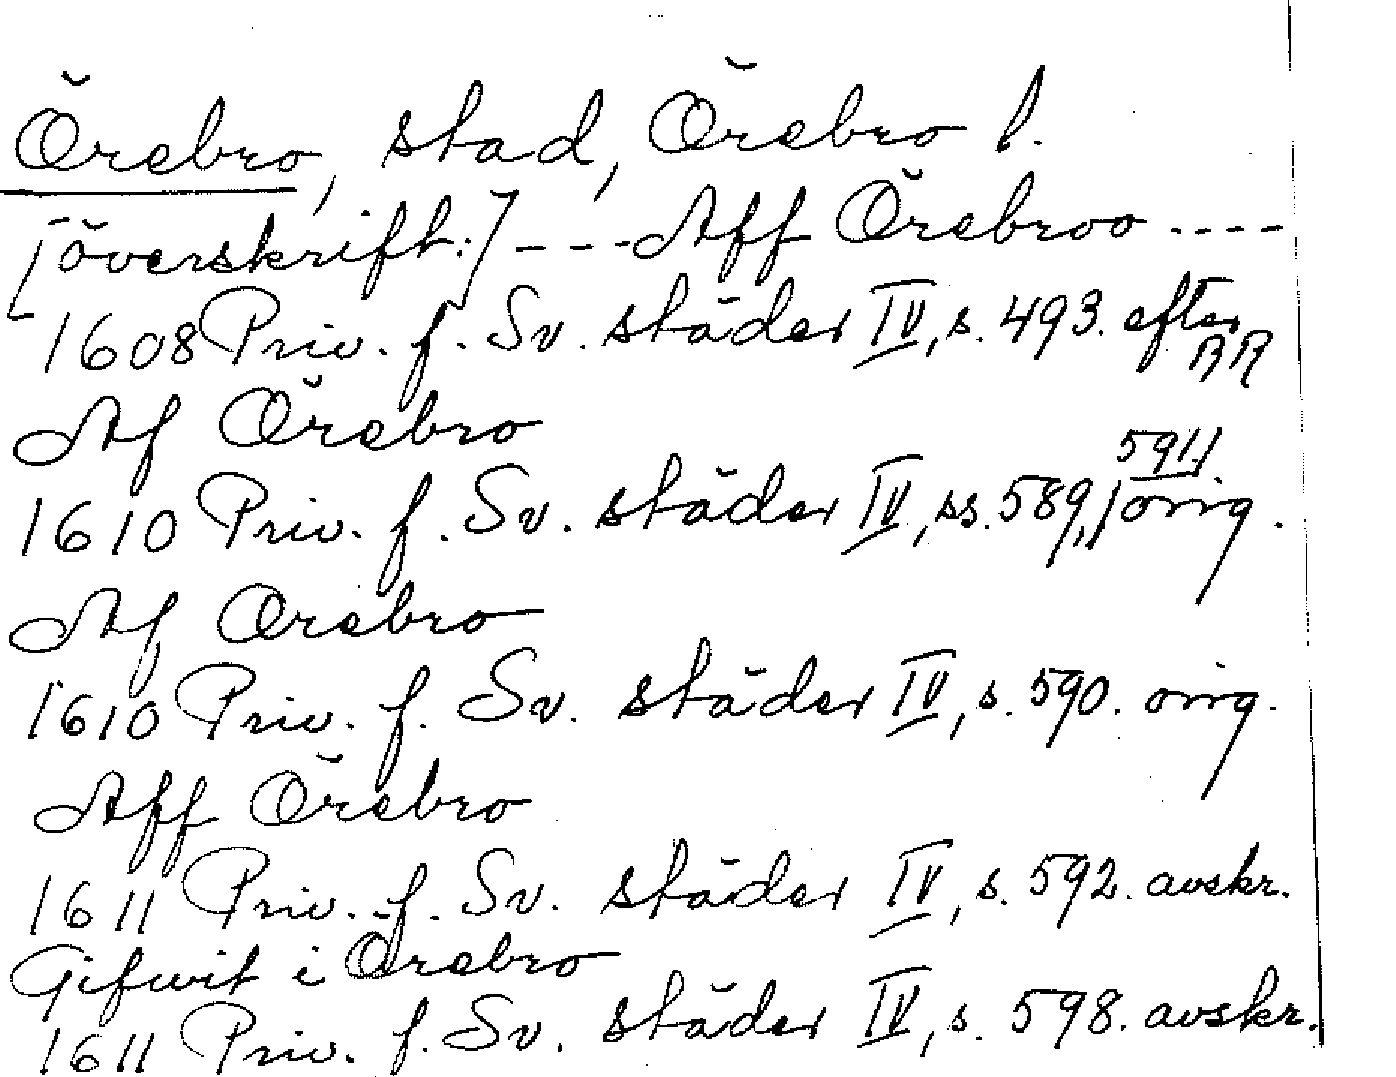 Örebro, stad, Örebro l.
[överskrift:] ---- Aff Örebroo ----
1608 Priv. f. Sv. städer IV, s. 493. efter RR
Af Örebro
1610 Priv. f. Sv. städer IV, ss. 589, 591. orig.
Af Orebro
1610 Priv. f. Sv. städer IV, s. 590. orig.
Aff Örebro
1611 Priv. f. Sv. städer IV, s. 592. avskr.
Gifwit i Örebro
1611 Priv. f. Sv. städer IV, s. 598. avskr.